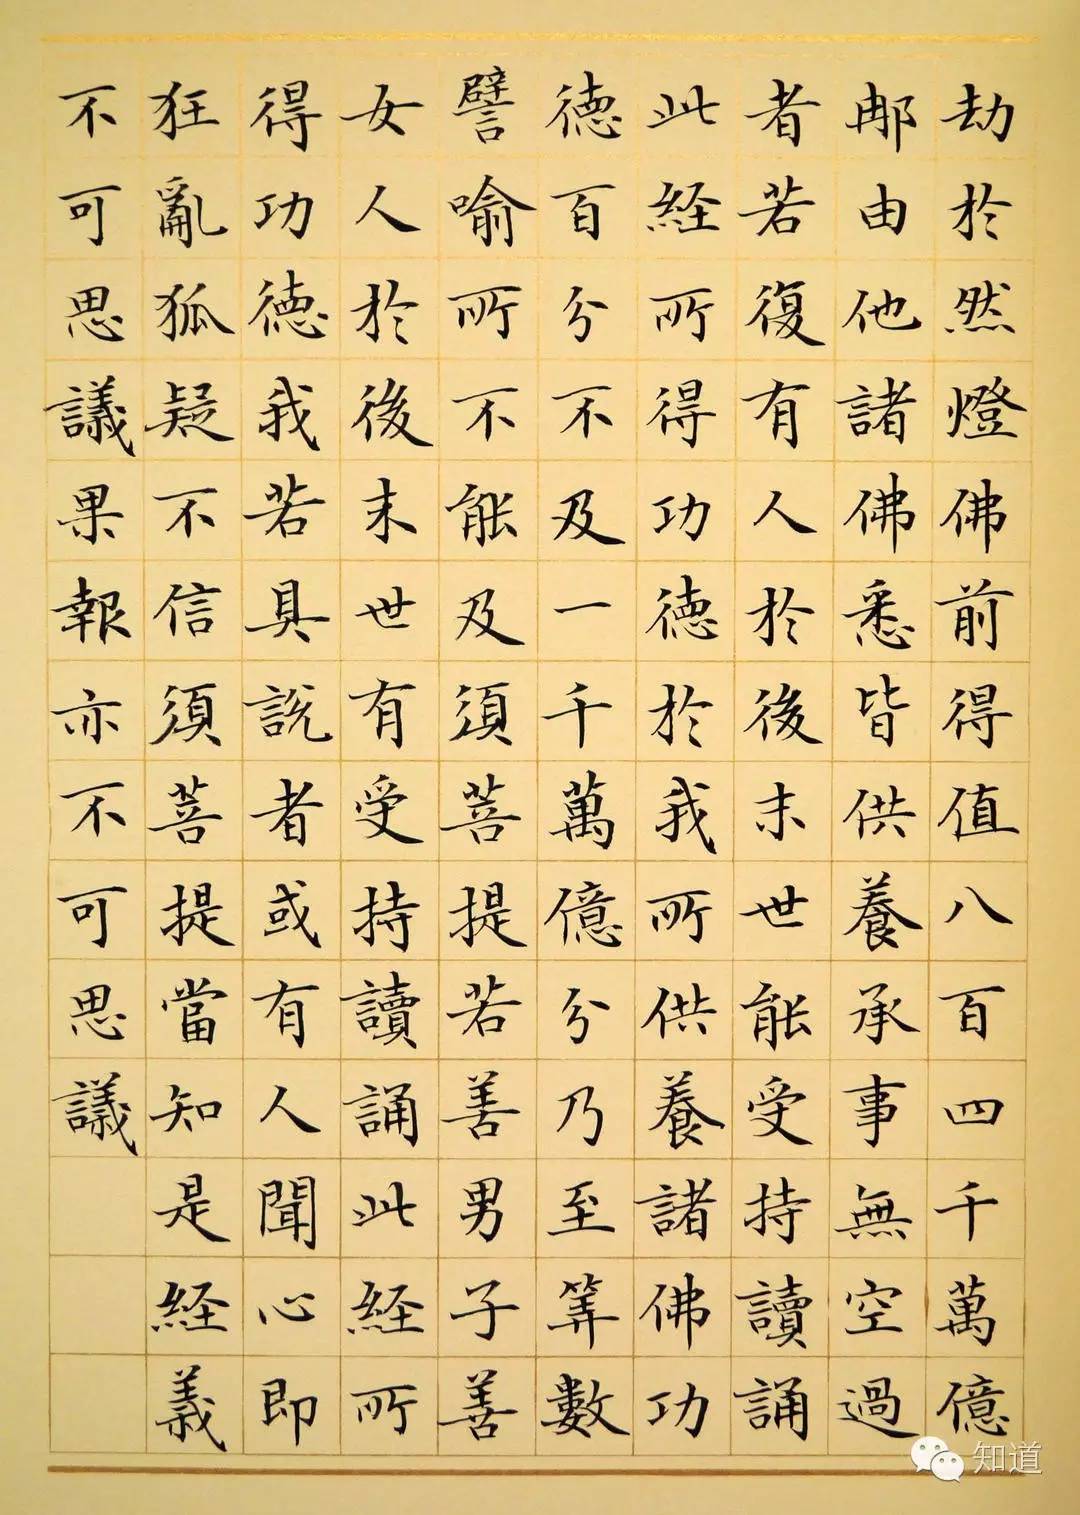 劫於然燈佛前得值八百四千萬億
那由他諸佛悉皆供養承事無空過
者若復有人於後末世能受持讀誦
此經所得功德於我所供養諸佛功
德百分不及一千萬億分乃至筭數
譬喻所不能及須菩提若善男子善
女人於後末世有受持讀誦此經所
得功德我若具說者或有人聞心即
狂亂狐疑不信須菩提當知是經義
不可思議果報亦不可思議
知道